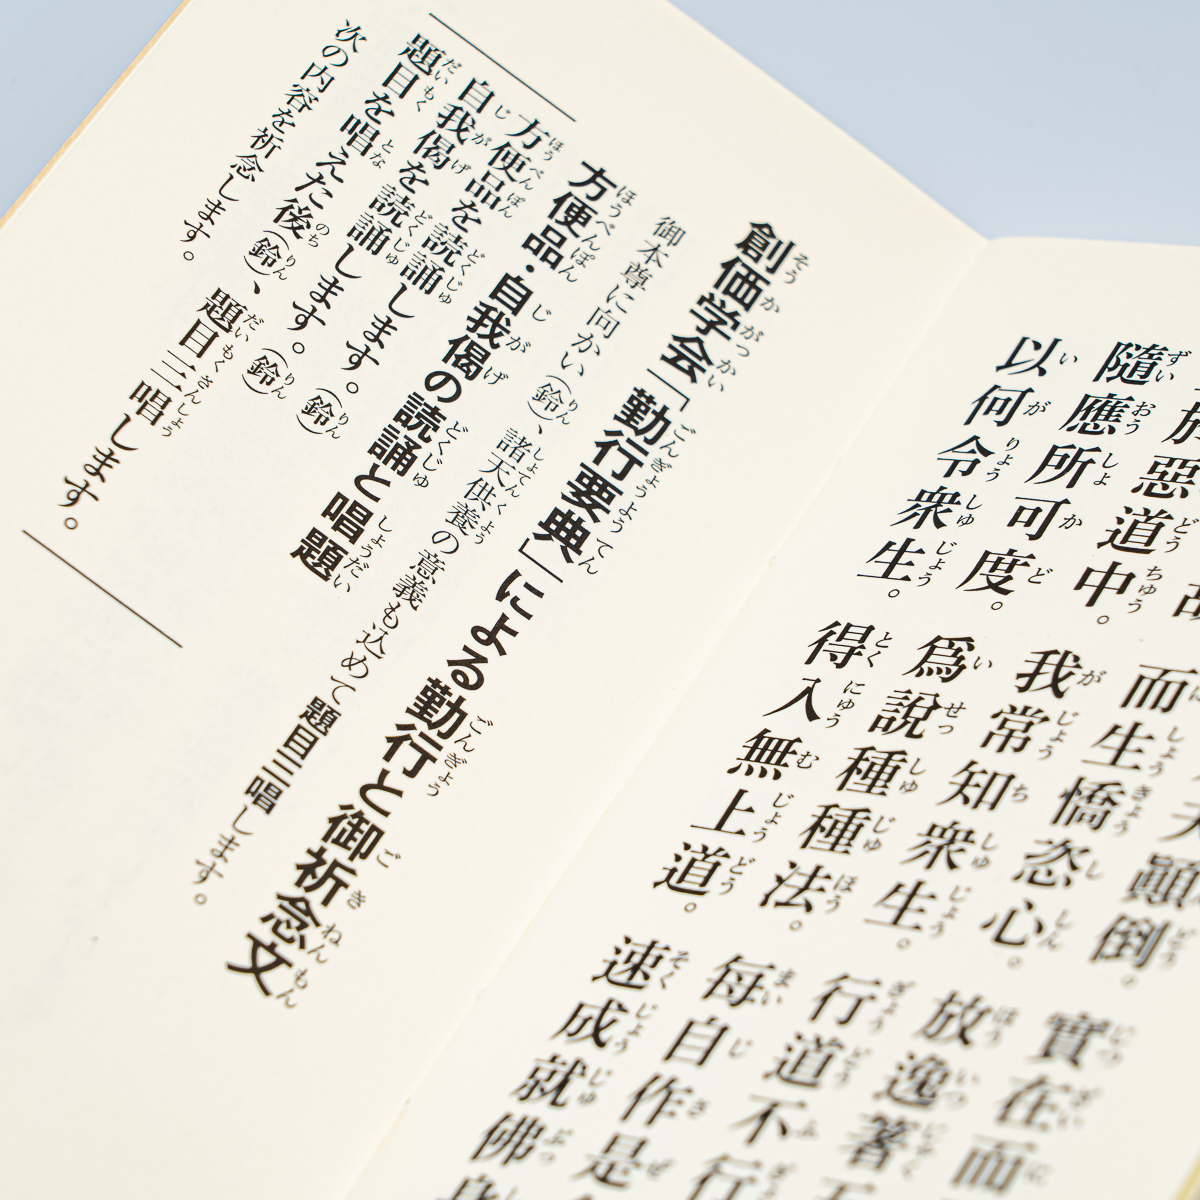 顚倒。實在而
而生憍恣心。放逸著
於惡道中。我常知衆生。行道不行
隨應所可度。爲說種種法。每自作是
以何令衆生。得入無上道。速成就佛身
創価学会「勤行要典」による勤行と御祈念文
御本尊に向かい(鈴)、諸天供養の意義も込めて題目三唱します。
方便品・自我偈の読誦と唱題
方便品を読誦します。(鈴)
自我偈を読誦します。(鈴)
題目を唱えた後(鈴)、題目三唱します。
次の内容を祈念します。